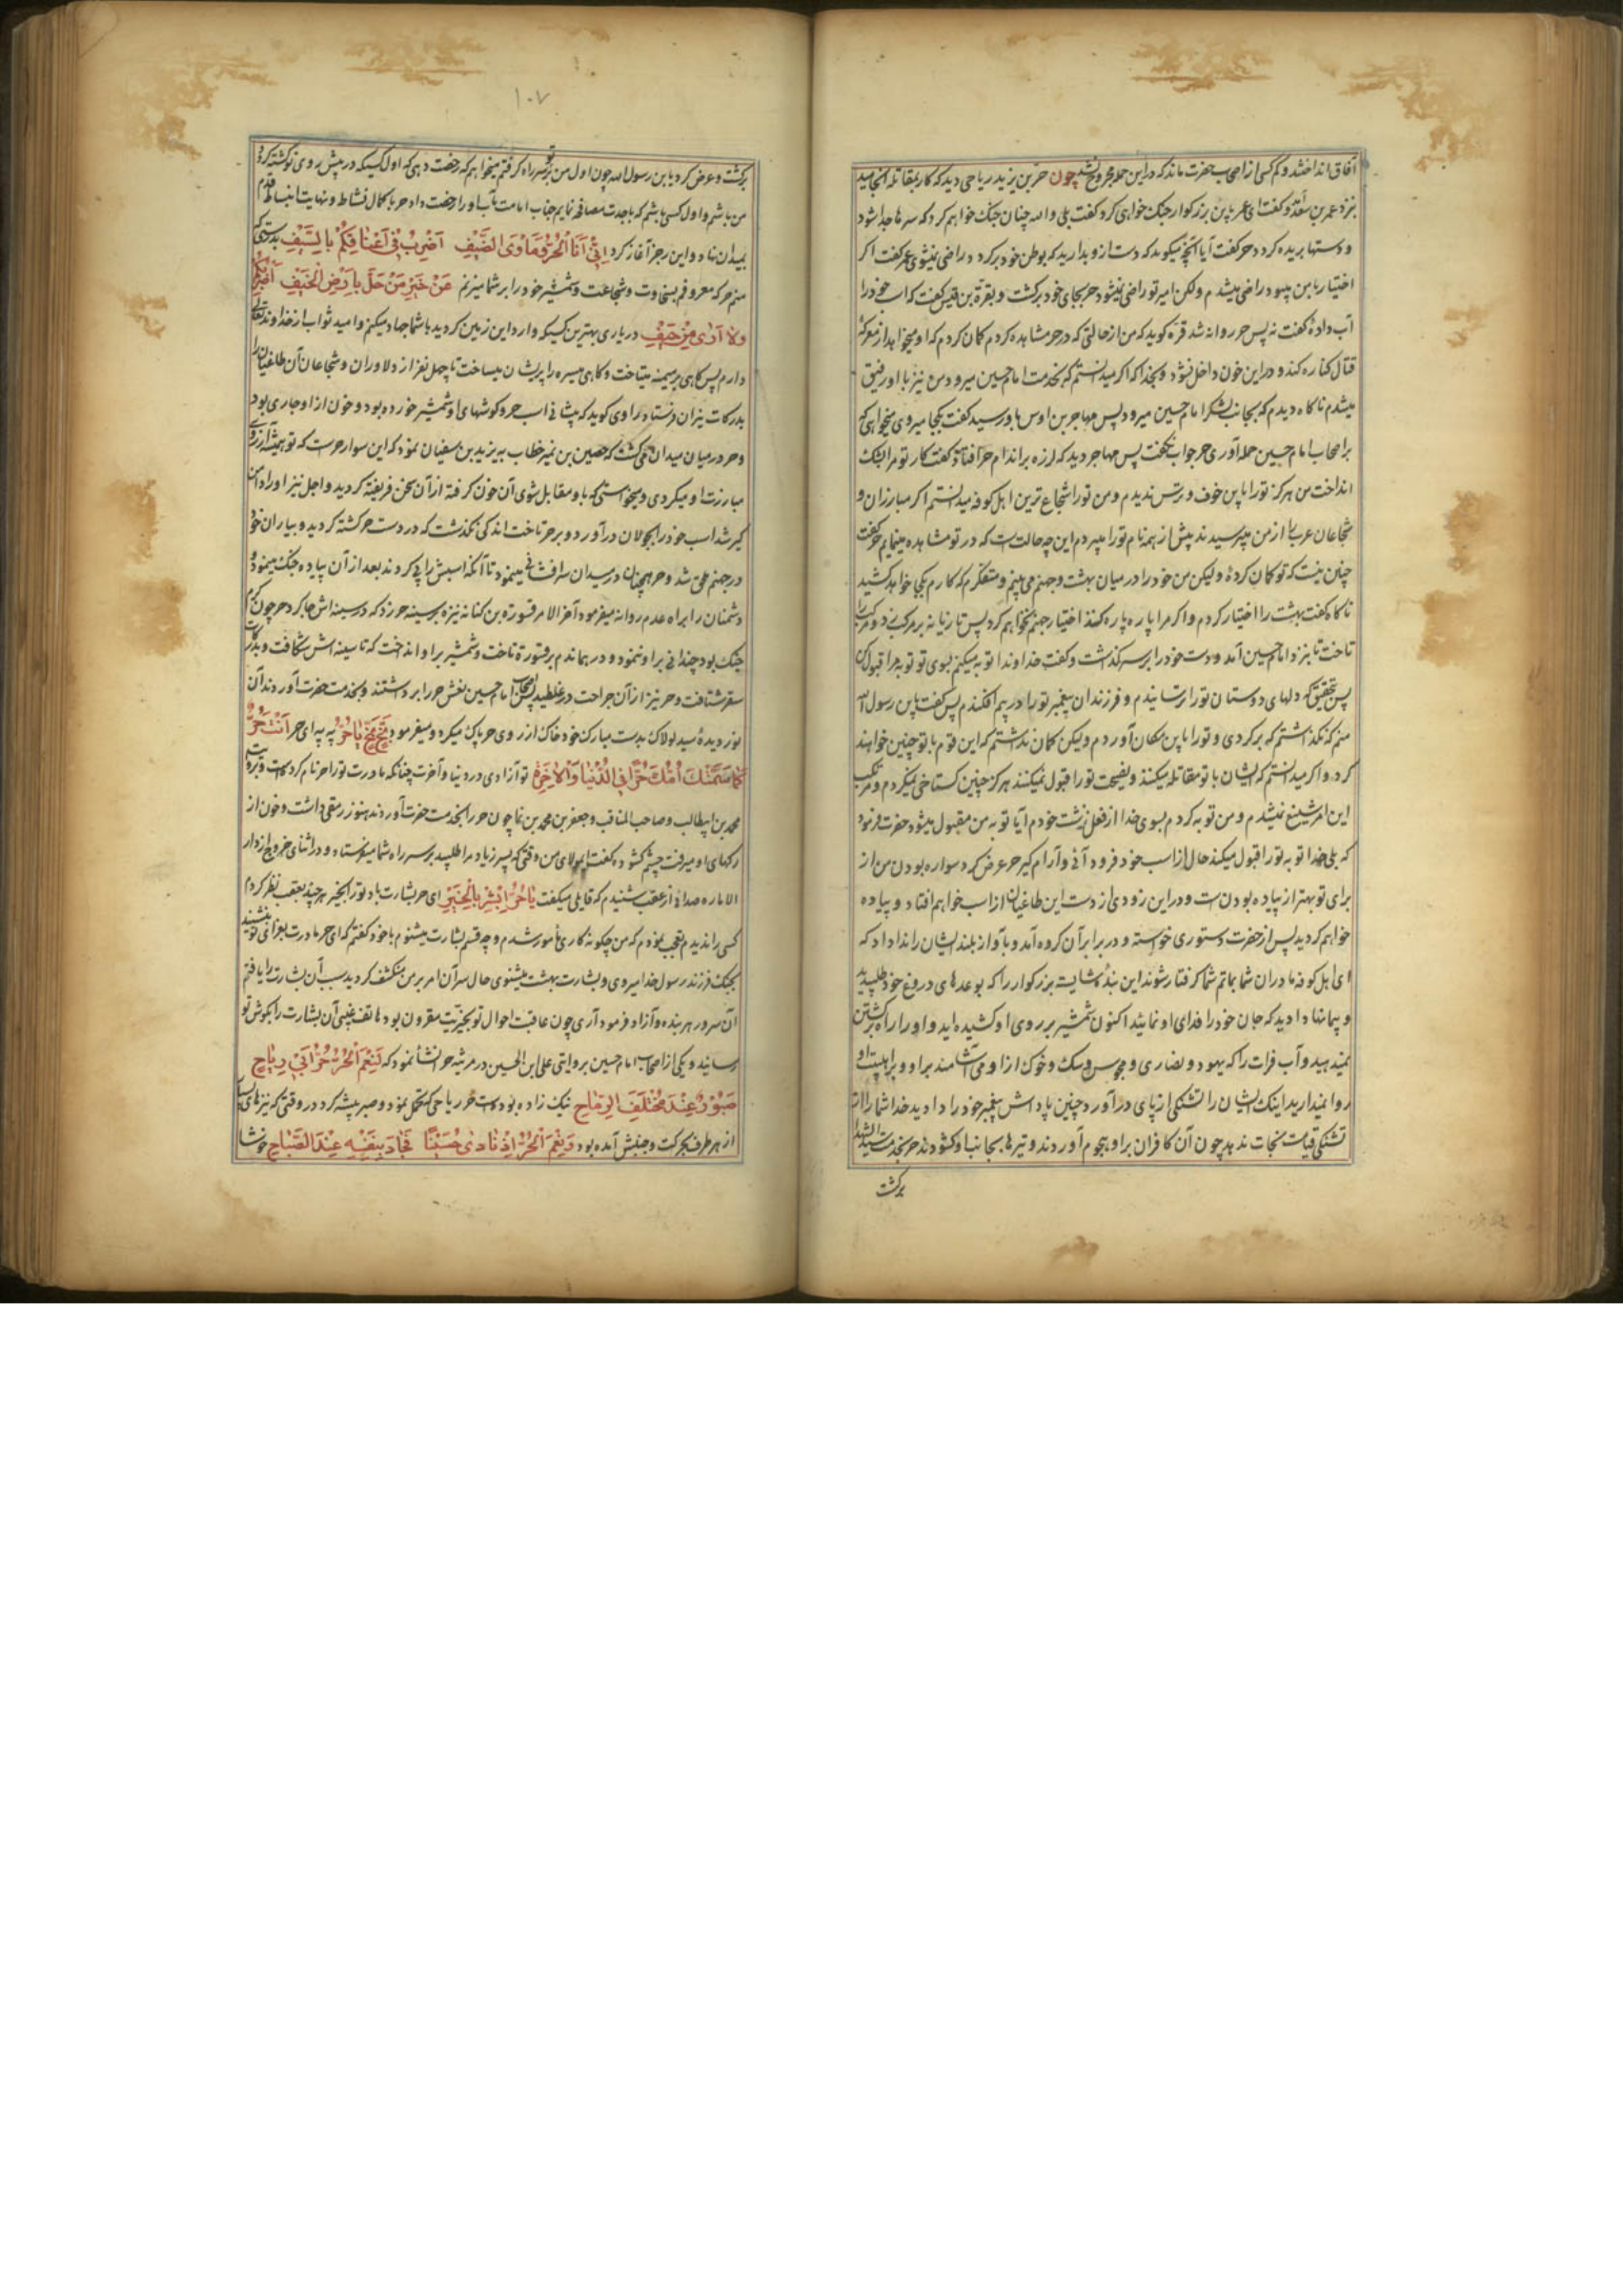 آفاق انداختند و کم کسی از اصحاب حضرت ماند که در این حمله مجروح نشد چون حر بن یزید ریاحی دید که کار بمقاتله انجامید
نزد عمر بن سعد و گفت ای عمر باین بزرگوار جنگ خواهی کرد گفت بلی والله چنان جنگ خواهم کرد که سرها جدا شود
و دستها بریده گردد حر گفت آیا آنچه میگوید که دست از و بدارید که بوطن خود برگردد راضی نمیشوی عمر گفت اگر
اختیار با من میبود راضی میشدم ولکن امیر تو راضی نمیشود حر بجای خود برگشت و بقرة بن قیس گفت که اسب خود را
آب دادهٔ گفت نه پس حر روانه شد قره کوید که من از حالتی که در حر مشاهده کردم گمان کردم که او میخواهد از معرکهٔ
قتال کناره کند و در این خون داخل نشود و بخدا که اگر میدانستم که بخدمت امام حسین میرود من نیز با او رفیق
میشدم ناگاه دیدم که بجانب لشکر امام حسین میرود پس مهاجر بن اوس باو رسید گفت بکجا میروی میخواهی که
بر اصحاب امام حسین حمله آوری حر جواب نگفت پس مهاجر دید که لرزه بر اندام حر افتاده گفت کار تو مرا بشک
انداخت من هرگز تو را باین خوف و ترس ندیدم و من تو را شجاع ترین اهل کوفه میدانستم اگر مبارزان و
شجاعان عرب را از من میپرسیدند پیش از همه نام تو را میبردم این چه حالت است که در تو مشاهده مینمایم حر گفت
چنین نیست که تو گمان کردهٔ ولیکن من خود را در میان بهشت و جهنم می بینم و متفکرم که کارم بکی خواهد کشید
ناگاه گفت بهشت را اختیار کردم و اگر مرا پاره پاره کنند اختیار جهنم نخواهم کرد پس تازیانه بر مرکب زد و مرکب را
تاخت تا بنزد امام حسین آمد و دست خود را بر سر گذاشت و گفت خداوندا توبه میکنم بسوی تو توبه مرا قبول کن
پس بتحقیق که دلهای دوستان تو را ترسانیدم و فرزندان پیغمبر تو را در بیم افکندم پس گفت یابن رسول الله
منم که نگذاشتم که برگردی و تو را باین مکان آوردم ولیکن گمان نداشتم که این قوم با تو چنین خواهند
کرد و اگر میدانستم که ایشان با تو مقاتله میکنند و نصیحت تو را قبول نمیکنند هرگز چنین گستاخی نمیکردم و مرتکب
این امر شنیع نمیشدم و من توبه کردم بسوی خدا از فعل زشت خودم آیا توبه من مقبول میشود حضرت فرمود
که بلی خدا توبه تو را قبول میکند حال از اسب خود فرود آئی و آرام گیر حر عرض کرد سواره بودن من از
برای تو بهتر از پیاده بودن است و در این زودی از دست این طاغیان از اسب خواهم افتاد و پیاده
خواهم گردید پس از حضرت دستوری خواسته و در برابر آن گروه آمد و بآواز بلند ایشان را ندا داد که
ای اهل کوفه مادران شما بماتم شما گرفتار شوند این بندهٔ شایسته بزرگوار را که بوعدهای دروغ خود طلبیدید
و پیمانها دادید که جان خود را فدای او نمائید اکنون شمشیر بر روی او کشیده اید و او را راه برگشتن
نمیدهید و آب فرات را که یهود و نصاری و مجوس و سگ و خوک از او می آشامند بر او و بر اهلبیت او
روا نمیدارید اینک ایشان را تشنگی از پای درآورد چنین پاداش پیغمبر خود را دادید خدا شما را از
تشنگی قیامت نجات ندهد چون آن کافران بر او هجوم آوردند و تیرها بجانب او گشودند حر بخدمت سید الشهدا
برگشت
۱۰۷
برگشت و عرض کرد یابن رسول الله چون اول من بر تو سر راه گرفتم میخواهم که رخصت دهی که اول کسیکه در پیش روی تو کشته گردد
من باشم و اول کسی باشم که با جدت مصافحه نمایم جناب امامت مآب او را رخصت داد حر با کمال نشاط و نهایت انبساط قدم
بمیدان نهاد و این رجز آغاز کرد اِنّی اَنَا الْحُرُّ وَمَاْوَی الضَّیْفِ اَضْرِبُ فی اَعْناقِکُمْ بِالسَّیْفِ بدرستی که
منم حر که معروفم بسخاوت و شجاعت و شمشیر خود را بر شما میزنم عَنْ خَیْرِ مَنْ حَلَّ بِاَرْضِ الْخَیْفِ اَضْرِبُکُمْ
وَلا اَری مِنْ حَیْفِ در یاری بهترین کسیکه وارد این زمین گردید با شما جهاد میکنم و امید ثواب از خداوند تعالی
دارم پس گاهی بر میمنه میتاخت و گاهی میسره را پریشان میساخت تا چهل نفر از دلاوران و شجاعان آن طاغیان را
بدرکات نیران فرستاد راوی گوید که پیشانی اسب حر و گوشهای او شمشیر خورده بود و خون از او جاری بود
و حر در میان میدان میگشت که حصین بن نمیر خطاب به یزید بن سفیان نمود که این سوار حر است که تو همیشه آرزوی
مبارزت او میکردی و میخواستی که باو مقابل شوی آن خون گرفته از آن سخن فریفته گردید و اجل نیز او را دامن
گیر شد اسب خود را بجولان درآورد و بر حر تاخت اندکی نگذشت که در دست حر کشته گردید و بیاران خود
در جهنم ملحق شد و حر همچنان در میدان سرافشانی مینمود تا آنکه اسبش را پی کردند بعد از آن پیاده جنگ مینمود و
دشمنان را براه عدم روانه میفرمود آخر الامر قسورة بن کنانه نیزه بر سینه حر زد که در سینه اش جا کرد حر چون گرم
جنگ بود چندانی پروا ننمود و در همان دم بر قسورة تاخت و شمشیر بر او انداخت که تا سینه اش شکافت و بدرکات
سقر شتافت و حر نیز از آن جراحت در غلطید پس اصحاب امام حسین نعش حر را برداشتند و بخدمت حضرت آوردند آن
نور دیدهٔ سید لولاک بدست مبارک خود خاک از روی حر پاک میکرد و میفرمود بَخٍ بَخٍ یا حُرُّ به به ای حر اَنْتَ حُرٌّ
کَما سَمَّتْکَ اُمُّکَ حُرًّا فِی الدُّنْیا وَالْاخِرَةِ تو آزادی در دنیا و آخرت چنانکه مادرت تو را حر نام کرده است و بروایت
محمد بن ابیطالب و صاحب المناقب و جعفر بن محمد بن نما چون حر را بخدمت حضرت آوردند هنوز رمقی داشت و خون از
رگهای او میرفت چشم گشوده گفت ای مولای من وقتی که پسر زیاد مرا طلبید بر سر راه شما میفرستاد و در اثنای خروج از دار
الاماره صدائی از عقب شنیدم که قایلی میگفت یا حُرُّ اَبْشِرْ بِالْخَیْرِ ای حر بشارت باد تو را بخیر هر چند بعقب نظر کردم
کسی را ندیدم تعجب نمودم که من چگونه کاری مأمور شدم و چه قسم بشارت میشنوم با خود گفتم که ای حر مادرت بعزای تو نشیند
بجنگ فرزند رسول خدا میروی و بشارت بهشت میشنوی حال سر آن امر بر من منکشف گردید سبب آن بشارت را یافتم
آن سرور هر بنده و آزاد فرمود آری چون عاقبت احوال تو بخیریت مقرون بود هاتف غیبی آن بشارت را بگوش تو
رسانید و یکی از اصحاب امام حسین بروایتی علی ابن الحسین در مرثیه حر انشأ نمود که لَنِعْمَ الْحُرُّ حُرُّ بَنی رِیاحِ
صَبُورٌ عِنْدَ مُخْتَلَفِ الرِّماحِ نیک زاده بوده است حر ریاحی که تحمل نمود و صبر پیشه کرد در وقتی که نیزهای بسیار
از هر طرف بحرکت و جنبش آمده بود وَنِعْمَ الْحُرُّ اِذْ نادی حُسَیْناً فَجادَ بِنَفْسِهِ عِنْدَ الصَّباحِ خوشا